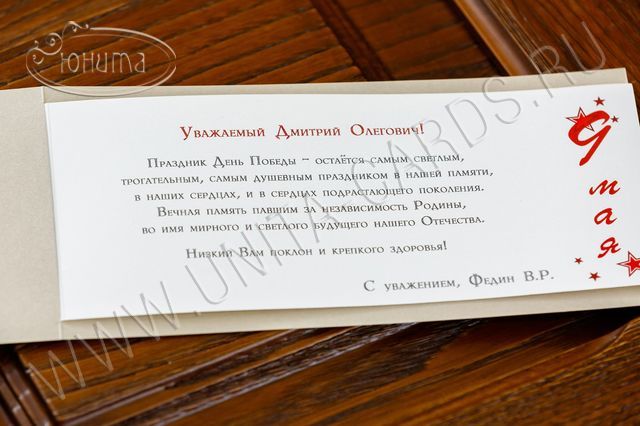 Юнита
Уважаемый Дмитрий Олегович!
Праздник День Победы – остаётся самым светлым,
трогательным, самым душевным праздником в нашей памяти,
в наших сердцах, и в сердцах подрастающего поколения.
Вечная память павшим за независимость Родины,
во имя мирного и светлого будущего нашего Отечества.
Низкий Вам поклон и крепкого здоровья!
С уважением, Федин В.Р.
9
мая
WWW.UNITA-CARDS.RU